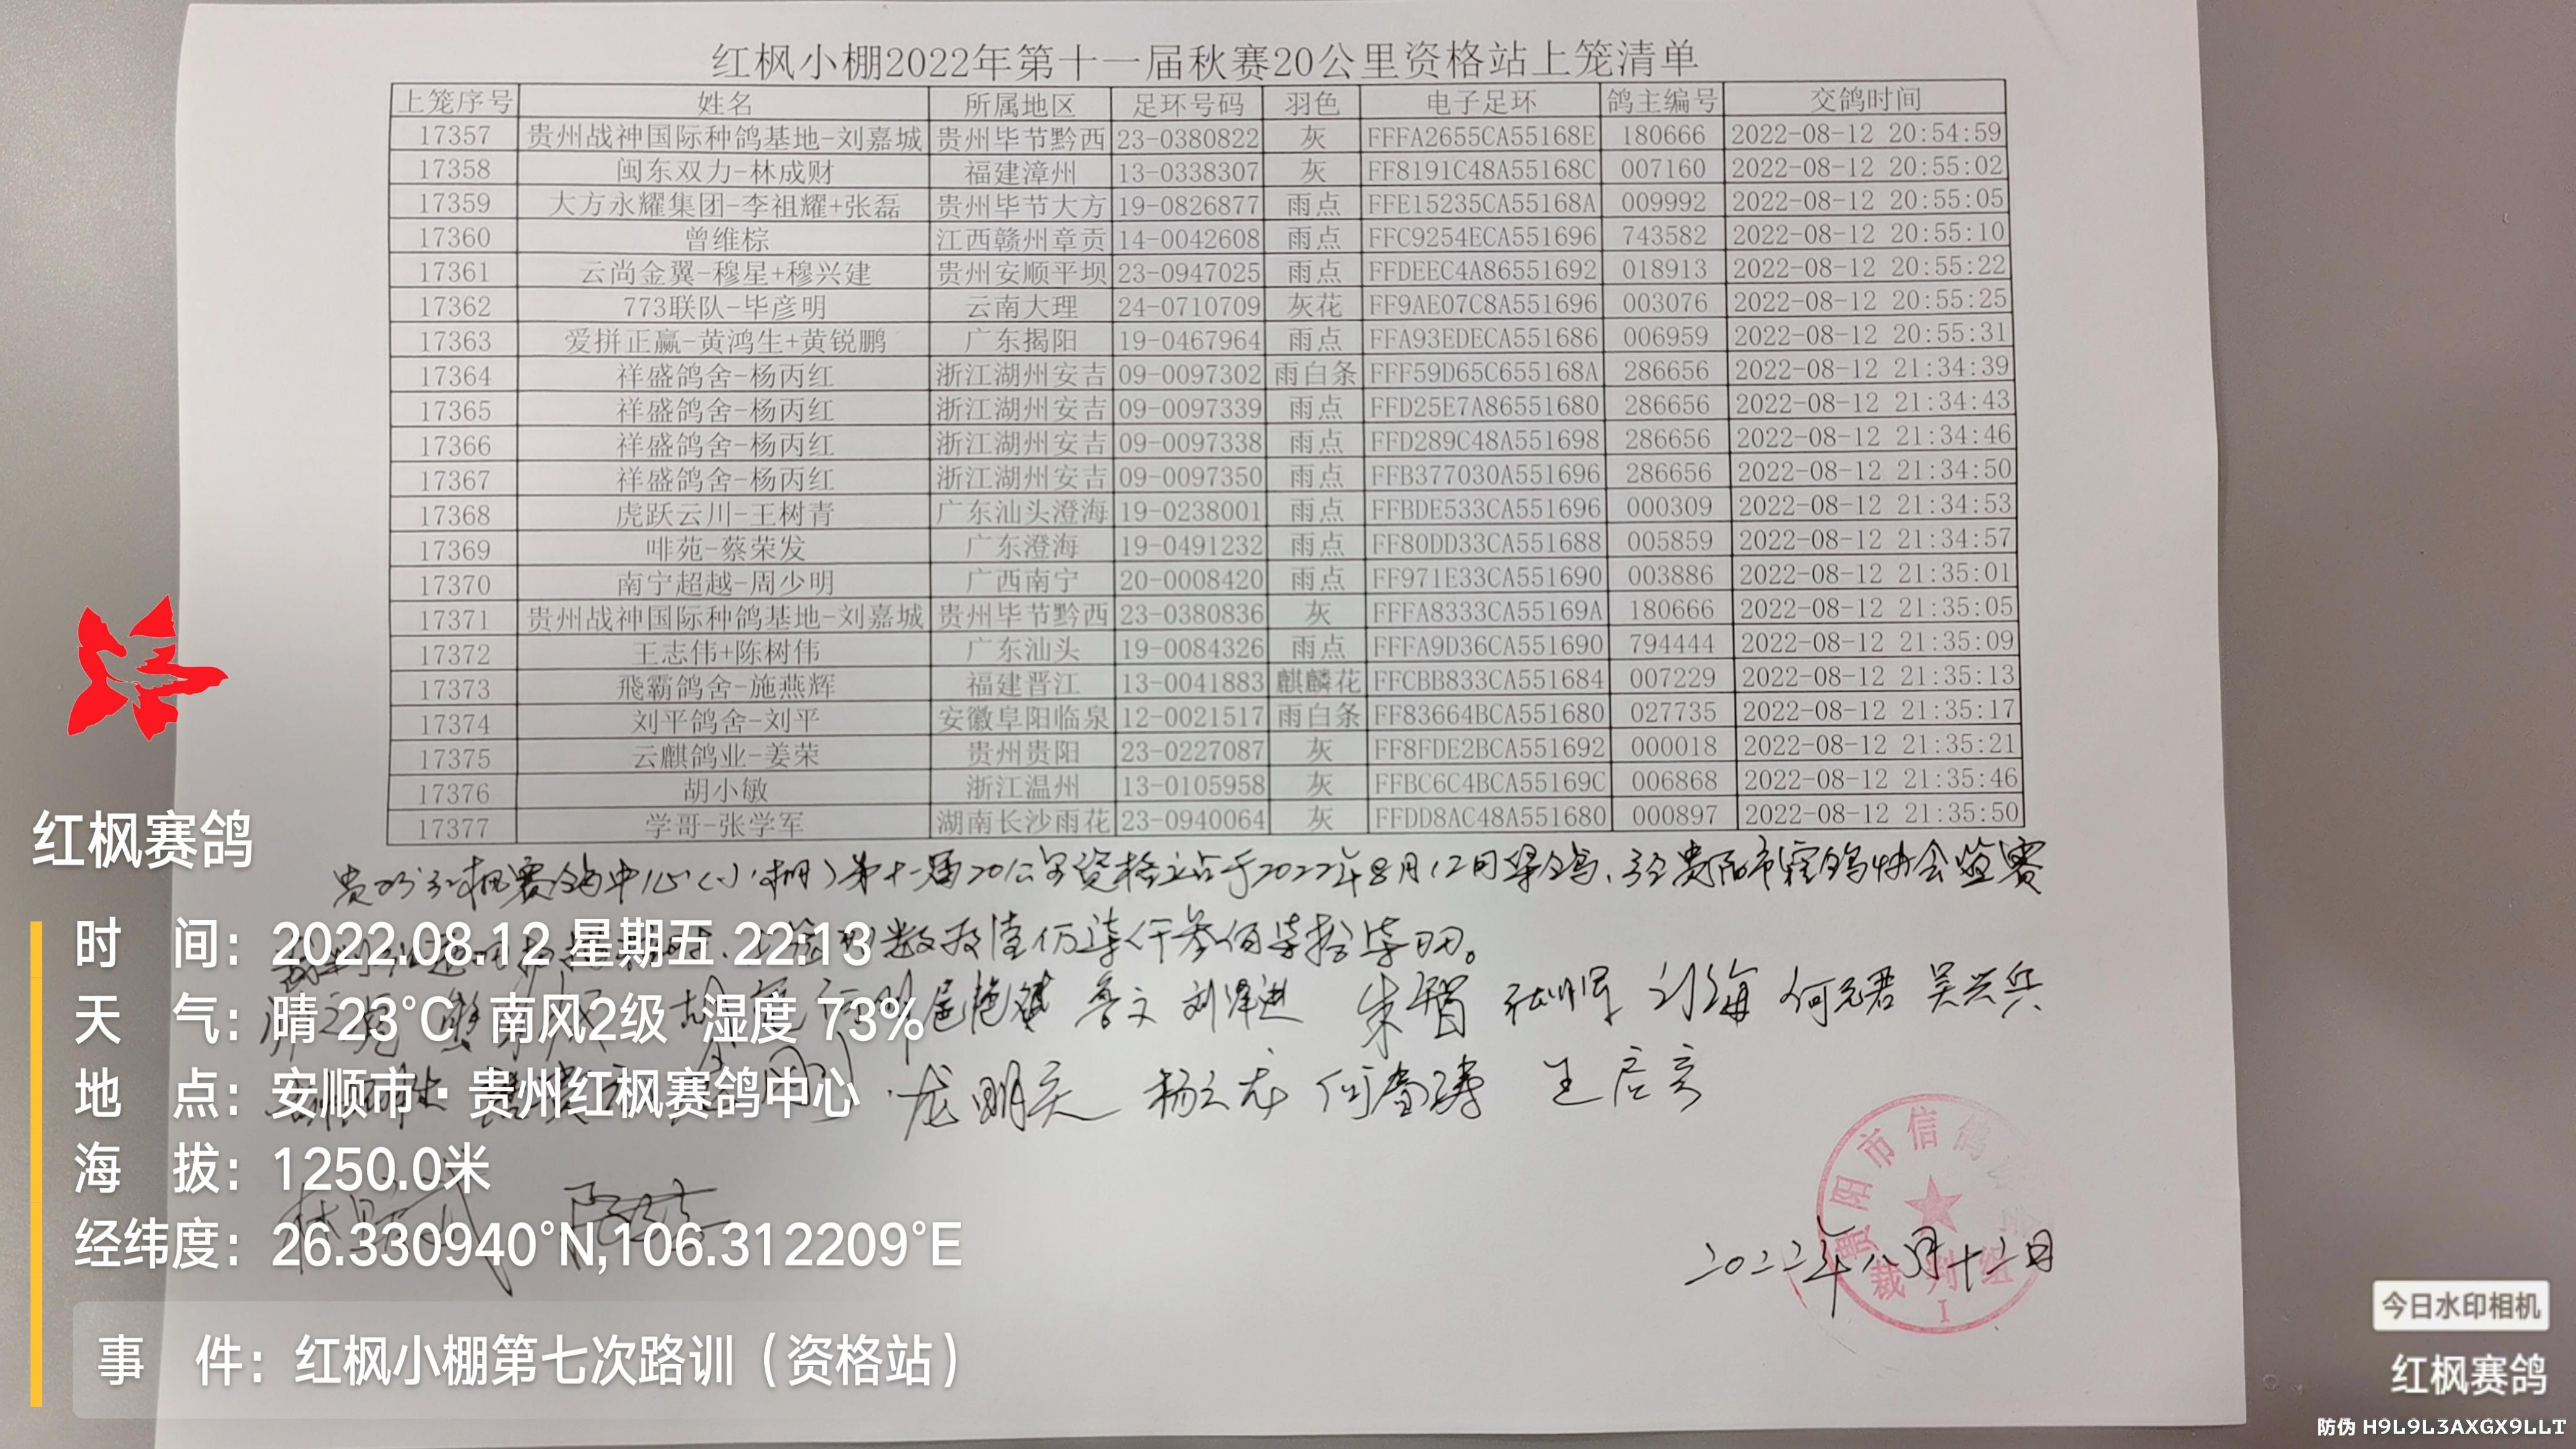 红枫小棚2022年第十一届秋赛20公里资格站上笼清单
上笼序号 姓名 所属地区 足环号码 羽色 电子足环 鸽主编号 交鸽时间
17357 贵州战神国际种鸽基地-刘嘉城 贵州毕节黔西 23-0380822 灰 FFFA2655CA55168E 180666 2022-08-12 20:54:59
17358 闽东双力-林成财 福建漳州 13-0338307 灰 FF8191C48A55168C 007160 2022-08-12 20:55:02
17359 大方永耀集团-李祖耀+张磊 贵州毕节大方 19-0826877 雨点 FFE15235CA55168A 009992 2022-08-12 20:55:05
17360 曾维棕 江西赣州章贡 14-0042608 雨点 FFC9254ECA551696 743582 2022-08-12 20:55:10
17361 云尚金翼-穆星+穆兴建 贵州安顺平坝 23-0947025 雨点 FFDEEC4A86551692 018913 2022-08-12 20:55:22
17362 773联队-毕彦明 云南大理 24-0710709 灰花 FF9AE07C8A551696 003076 2022-08-12 20:55:25
17363 爱拼正赢-黄鸿生+黄锐鹏 广东揭阳 19-0467964 雨点 FFA93EDECA551686 006959 2022-08-12 20:55:31
17364 祥盛鸽舍-杨丙红 浙江湖州安吉 09-0097302 雨白条 FFF59D65C655168A 286656 2022-08-12 21:34:39
17365 祥盛鸽舍-杨丙红 浙江湖州安吉 09-0097339 雨点 FFD25E7A86551680 286656 2022-08-12 21:34:43
17366 祥盛鸽舍-杨丙红 浙江湖州安吉 09-0097338 雨点 FFD289C48A551698 286656 2022-08-12 21:34:46
17367 祥盛鸽舍-杨丙红 浙江湖州安吉 09-0097350 雨点 FFB377030A551696 286656 2022-08-12 21:34:50
17368 虎跃云川-王树青 广东汕头澄海 19-0238001 雨点 FFBDE533CA551696 000309 2022-08-12 21:34:53
17369 啡苑-蔡荣发 广东澄海 19-0491232 雨点 FF80DD33CA551688 005859 2022-08-12 21:34:57
17370 南宁超越-周少明 广西南宁 20-0008420 雨点 FF971E33CA551690 003886 2022-08-12 21:35:01
17371 贵州战神国际种鸽基地-刘嘉城 贵州毕节黔西 23-0380836 灰 FFFA8333CA55169A 180666 2022-08-12 21:35:05
17372 王志伟+陈树伟 广东汕头 19-0084326 雨点 FFFA9D36CA551690 794444 2022-08-12 21:35:09
17373 飛霸鸽舍-施燕辉 福建晋江 13-0041883 麒麟花 FFCBB833CA551684 007229 2022-08-12 21:35:13
17374 刘平鸽舍-刘平 安徽阜阳临泉 12-0021517 雨白条 FF83664BCA551680 027735 2022-08-12 21:35:17
17375 云麒鸽业-姜荣 贵州贵阳 23-0227087 灰 FF8FDE2BCA551692 000018 2022-08-12 21:35:21
17376 胡小敏 浙江温州 13-0105958 灰 FFBC6C4BCA55169C 006868 2022-08-12 21:35:46
17377 学哥-张学军 湖南长沙雨花 23-0940064 灰 FFDD8AC48A551680 000897 2022-08-12 21:35:50
贵州红枫赛鸽中心(小棚)第十一届20公里资格站于2022年8月12日集鸽、经贵阳市信鸽协会监赛
数为壹万柒仟叁佰柒拾柒羽。
鲁文 刘泽进 朱智 张帅军 刘海 何元君 吴兴兵
龙明亮 杨云龙 何奎涛 王启亮
贵阳市信鸽
裁判组
1
2022年八月十二日
红枫赛鸽
时 间：2022.08.12 星期五 22:13
天 气：晴 23°C 南风2级 湿度 73%
地 点：安顺市·贵州红枫赛鸽中心
海 拔：1250.0米
经纬度：26.330940°N,106.312209°E
事 件：红枫小棚第七次路训（资格站）
今日水印相机
红枫赛鸽
防伪 H9L9L3AXGX9LLT